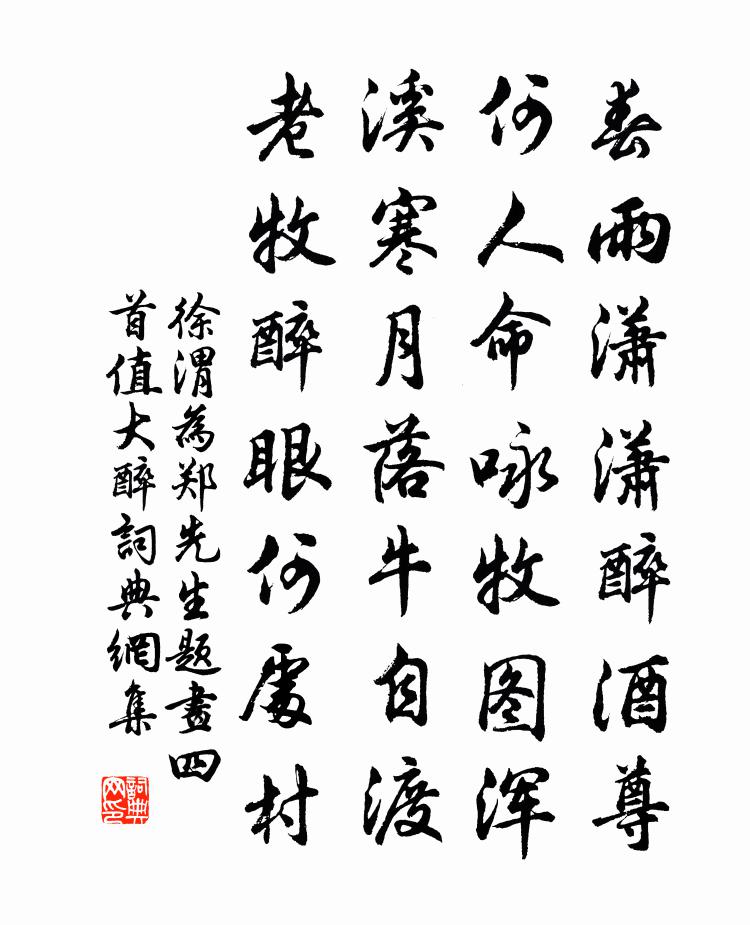 春雨潇潇醉酒尊
何人命咏牧图浑
溪寒月落牛自渡
老牧醉眼何處村
徐渭為郑先生题畫四
首值大醉詞典網集
詞典网印